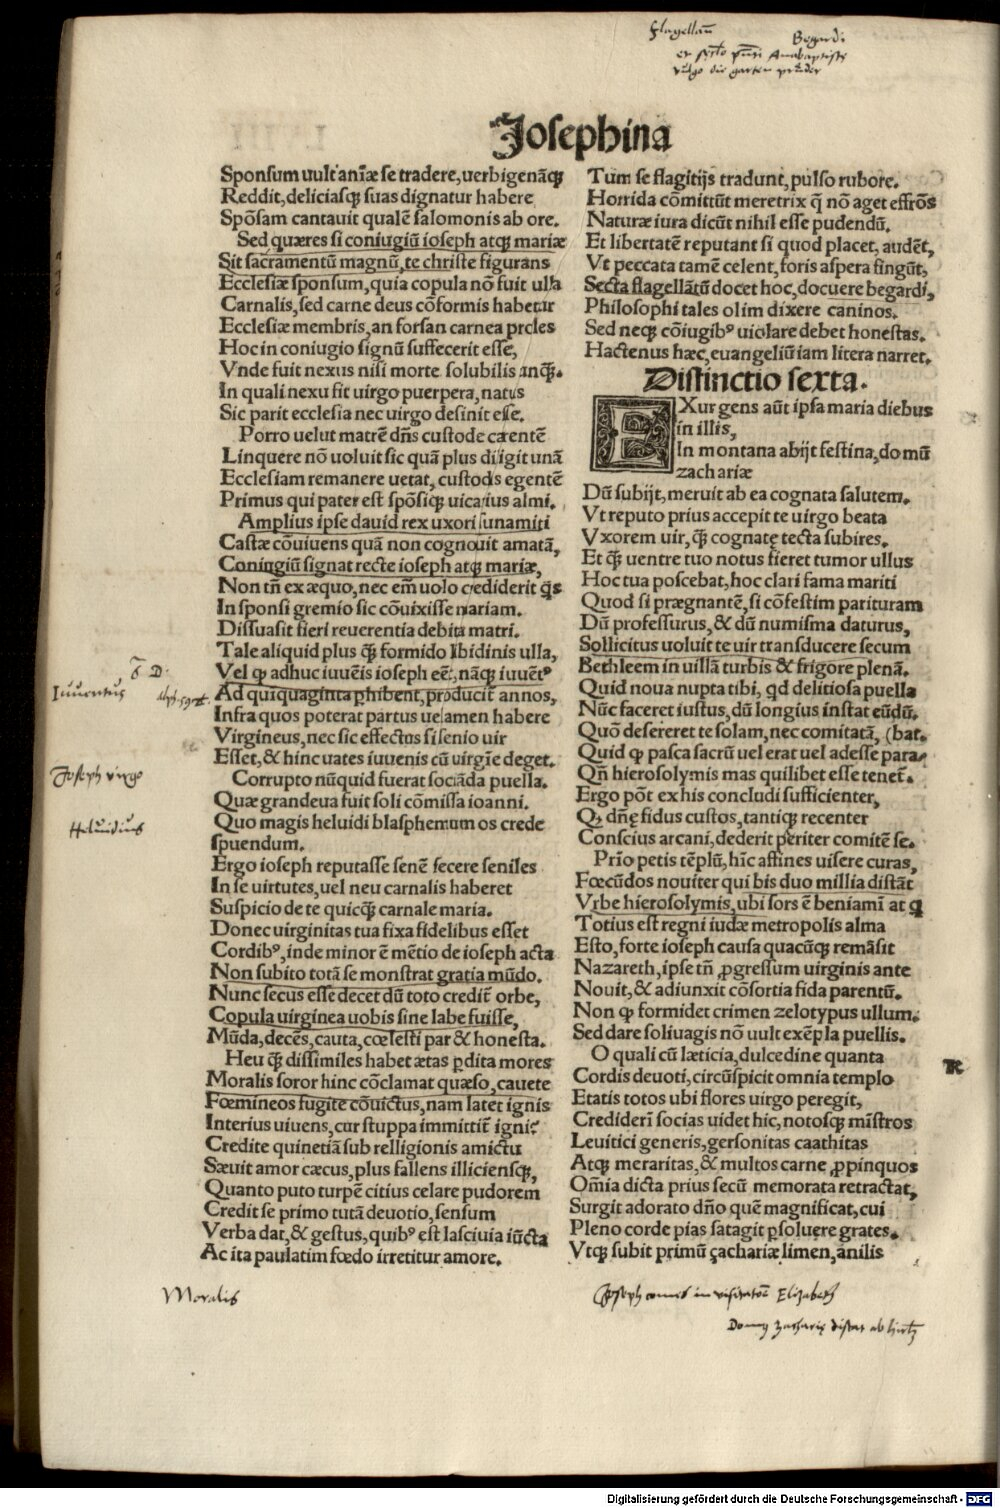 Flagellan̄
Begardi
Anabaptiste
vulgo die garten
Josephina
Sponsum uult aniæ se tradere, uerbigenāq;
Reddit, deliciasq; suas dignatur habere
Spōsam cantauit qualē salomonis ab ore.
Sed quæres si coniugiū ioseph atq; mariæ
Sit sacramentū magnū, te christe figurans
Ecclesiæ sponsum, quia copula nō fuit ulla
Carnalis, sed carne deus cōformis habetur
Ecclesiæ membris, an forsan carnea proles
Hoc in coniugio signū suffecerit esse,
Vnde fuit nexus nisi morte solubilis anq̄.
In quali nexu fit uirgo puerpera, natus
Sic parit ecclesia nec uirgo desinit esse.
Porro uelut matrē dn̄s custode carentē
Linquere nō uoluit sic quā plus diligit unā
Ecclesiam remanere uetat, custodis egentē
Primus qui pater est spōsiq; uicarius almi.
Amplius ipse dauid rex uxori sunamiti
Castæ cōuiuens quā non cognouit amatā,
Coniugiū signat recte ioseph atq; mariæ,
Non tn̄ ex æquo, nec em̄ uolo crediderit q̇s
In sponsi gremio sic cōuixisse mariam.
Dissuasit fieri reuerentia debita matri.
Tale aliquid plus q̄ formido libidinis ulla,
Vel ꝙ adhuc iuuēis ioseph eēt, nāq; iuuētꝰ
Ad quinquaginta ꝑhibent, producit annos,
Infra quos poterat partus uelamen habere
Virgineus, nec sic effectus si senio uir
Esset, & hinc uates iuuenis cū uirgīe deget.
Corrupto nūquid fuerat sociāda puella.
Quæ grandeua fuit soli cōmissa ioanni.
Quo magis heluidi blasphemum os crede
spuendum.
Ergo ioseph reputasse senē fecere seniles
In se uirtutes, uel neu carnalis haberet
Suspicio de te quicq̄ carnale maria.
Donec uirginitas tua fixa fidelibus esset
Cordibꝰ, inde minor ē mētio de ioseph acta
Non subito totā se monstrat gratia mūdo.
Nunc secus esse decet dū toto credit̄ orbe,
Copula uirginea uobis sine labe fuisse,
Mūda, decēs, cauta, cœlesti par & honesta.
Heu q̄ dissimiles habet ætas ꝑdita mores
Moralis soror hinc cōclamat quæso, cauete
Fœmineos fugite cōuictus, nam latet ignis
Interius uiuens, cur stuppa immittit̄ igni?
Credite quinetiā sub relligionis amictu
Sæuit amor cæcus, plus fallens illiciensq;,
Quanto puto turpē citius celare pudorem
Credit se primo tutā deuotio, sensum
Verba dat, & gestus, quibꝰ est lasciuia iūcta
Ac ita paulatim fœdo irretitur amore.
Iuuentus
Joseph virgo
Heluidius
Moralis
Tum se flagitijs tradunt, pulso rubore.
Horrida cōmittūt meretrix q̄ nō aget effrōs
Naturæ iura dicūt nihil esse pudendū.
Et libertatē reputant si quod placet, audēt,
Vt peccata tamē celent, foris aspera fingūt,
Secta flagellātū docet hoc, docuere begardi,
Philosophi tales olim dixere caninos.
Sed neq; cōiugibꝰ uiolare debet honestas.
Hactenus hæc, euangeliū iam litera narret.
Distinctio sexta.
EXurgens aūt ipsa maria diebus
in illis,
In montana abijt festina, domū
zachariæ
Dū subijt, meruit ab ea cognata salutem.
Vt reputo prius accepit te uirgo beata
Vxorem uir, q̄ cognatę tecta subires.
Et q̄ uentre tuo notus fieret tumor ullus
Hoc tua poscebat, hoc clari fama mariti
Quod si prægnantē, si cōfestim parituram
Dū professurus, & dū numisma daturus,
Sollicitus uoluit te uir transducere secum
Bethleem in uillā turbis & frigore plenā.
Quid noua nupta tibi, qd delitiosa puella
Nūc faceret iustus, dū longius instat eūdū.
Quō desereret te solam, nec comitatā, (bat.
Quid ꝙ pasca sacrū uel erat uel adesse para-
Qn̄ hierosolymis mas quilibet esse tenet̄.
Ergo pōt ex his concludi sufficienter,
Q; dn̄ę fidus custos, tantiq; recenter
Conscius arcani, dederit pariter comitē se.
Prīo petis tēplū, hīc affines uisere curas,
Fœcūdos nouiter qui bis duo millia distāt
Vrbe hierosolymis, ubi sors ē beniamī atq
Totius est regni iudæ metropolis alma
Esto, forte ioseph causa quacūq; remāsit
Nazareth, ipse tn̄ ꝓgressum uirginis ante
Nouit, & adiunxit cōsortia fida parentū.
Non ꝙ formidet crimen zelotypus ullum.
Sed dare soliuagis nō uult exēpla puellis.
O quali cū læticia, dulcedine quanta
Cordis deuoti, circūspicit omnia templo
Etatis totos ubi flores uirgo peregit,
Crediderī socias uidet hic, notosq; mīstros
Leuitici generis, gersonitas caathitas
Atq; meraritas, & multos carne ꝓpinquos
Oīa dicta prius secū memorata retractat,
Surgit adorato dn̄o quē magnificat, cui
Pleno corde pias satagit ꝑsoluere grates.
Vtq; subit primū çachariæ limen, anilis
R
Joseph comes in visitatōe Elizabeth
Domus Zacharię distat ab
Digitalisierung gefördert durch die Deutsche Forschungsgemeinschaft - DFG